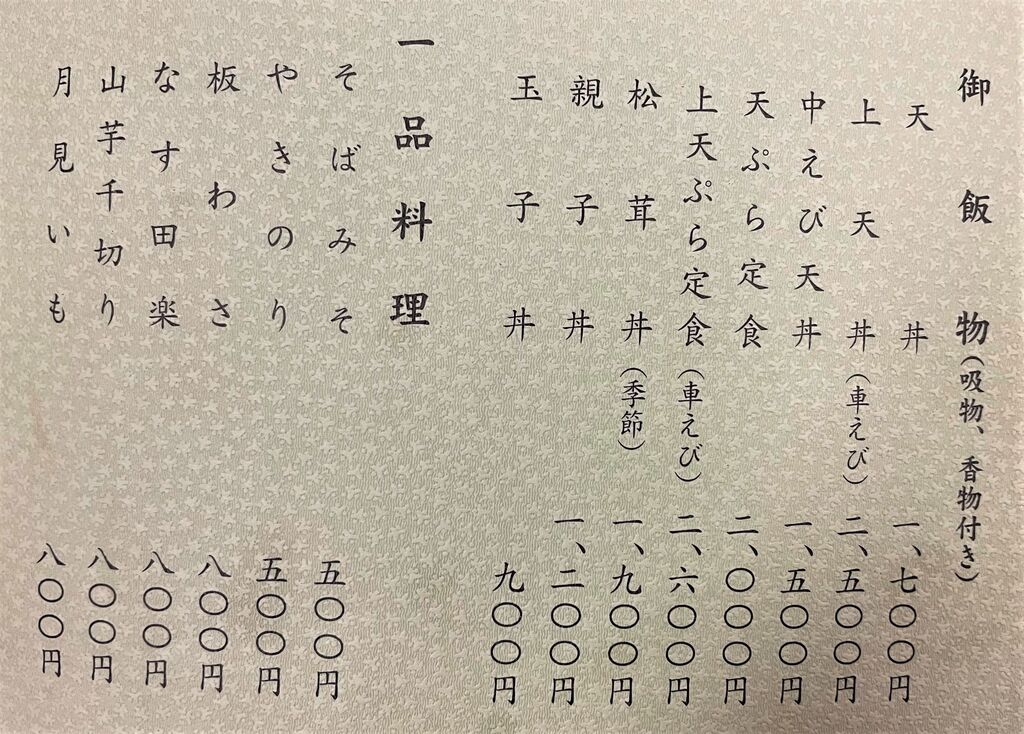 御飯物（吸物、香物付き）
天丼 一、七〇〇円
上天丼（車えび） 二、五〇〇円
中えび天丼 一、五〇〇円
天ぷら定食 二、〇〇〇円
上天ぷら定食（車えび） 二、六〇〇円
松茸丼（季節） 一、九〇〇円
親子丼 一、二〇〇円
玉子丼 九〇〇円
一品料理
そばみそ 五〇〇円
やきのり 五〇〇円
板わさ 八〇〇円
なす田楽 八〇〇円
山芋千切り 八〇〇円
月見いも 八〇〇円